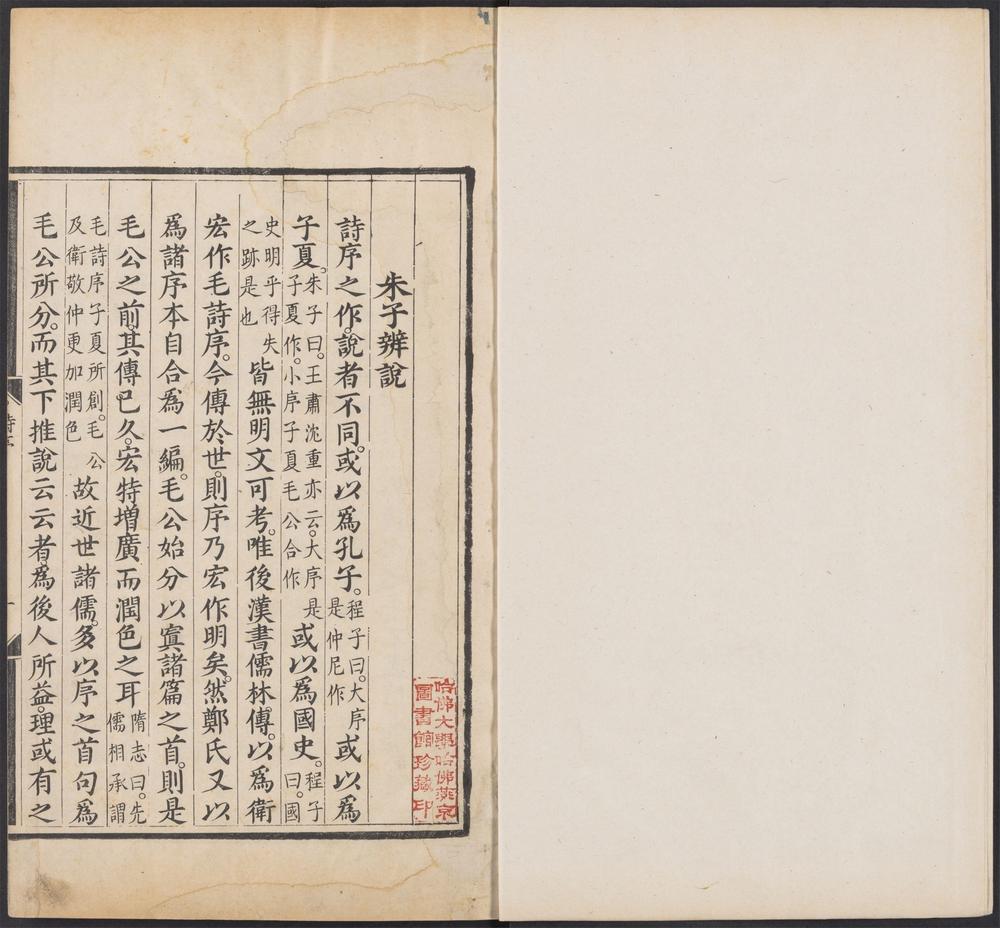 哈佛大學哈佛燕京
圖書館珍藏印
朱子辨說
詩序之作。說者不同。或以爲孔子。程子曰。大序是仲尼作或以爲
子夏。朱子曰。王肅沈重亦云。大序是子夏作。小序子夏毛公合作或以爲國史。程子曰。國
史明乎得失之跡是也皆無明文可考。唯後漢書儒林傳。以爲衛
宏作毛詩序。今傳於世。則序乃宏作明矣。然鄭氏又以
爲諸序本自合爲一編。毛公始分以寘諸篇之首。則是
毛公之前。其傳已久。宏特增廣而潤色之耳隋志曰。先儒相承謂
毛詩序子夏所創。毛公及衛敬仲更加潤色故近世諸儒。多以序之首句爲
毛公所分。而其下推說云云者。爲後人所益。理或有之